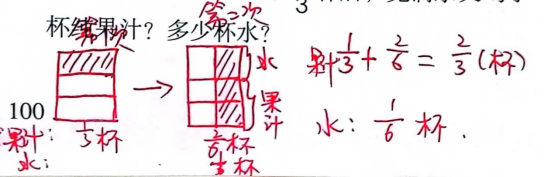 第二次
3
杯纯果汁？多少杯水？
第一次
水
果汁
果汁 1/3 + 2/6 = 2/3 (杯)
水: 1/6 杯.
100
果汁: 1/3 杯
水:
2/6 杯
1/6 杯